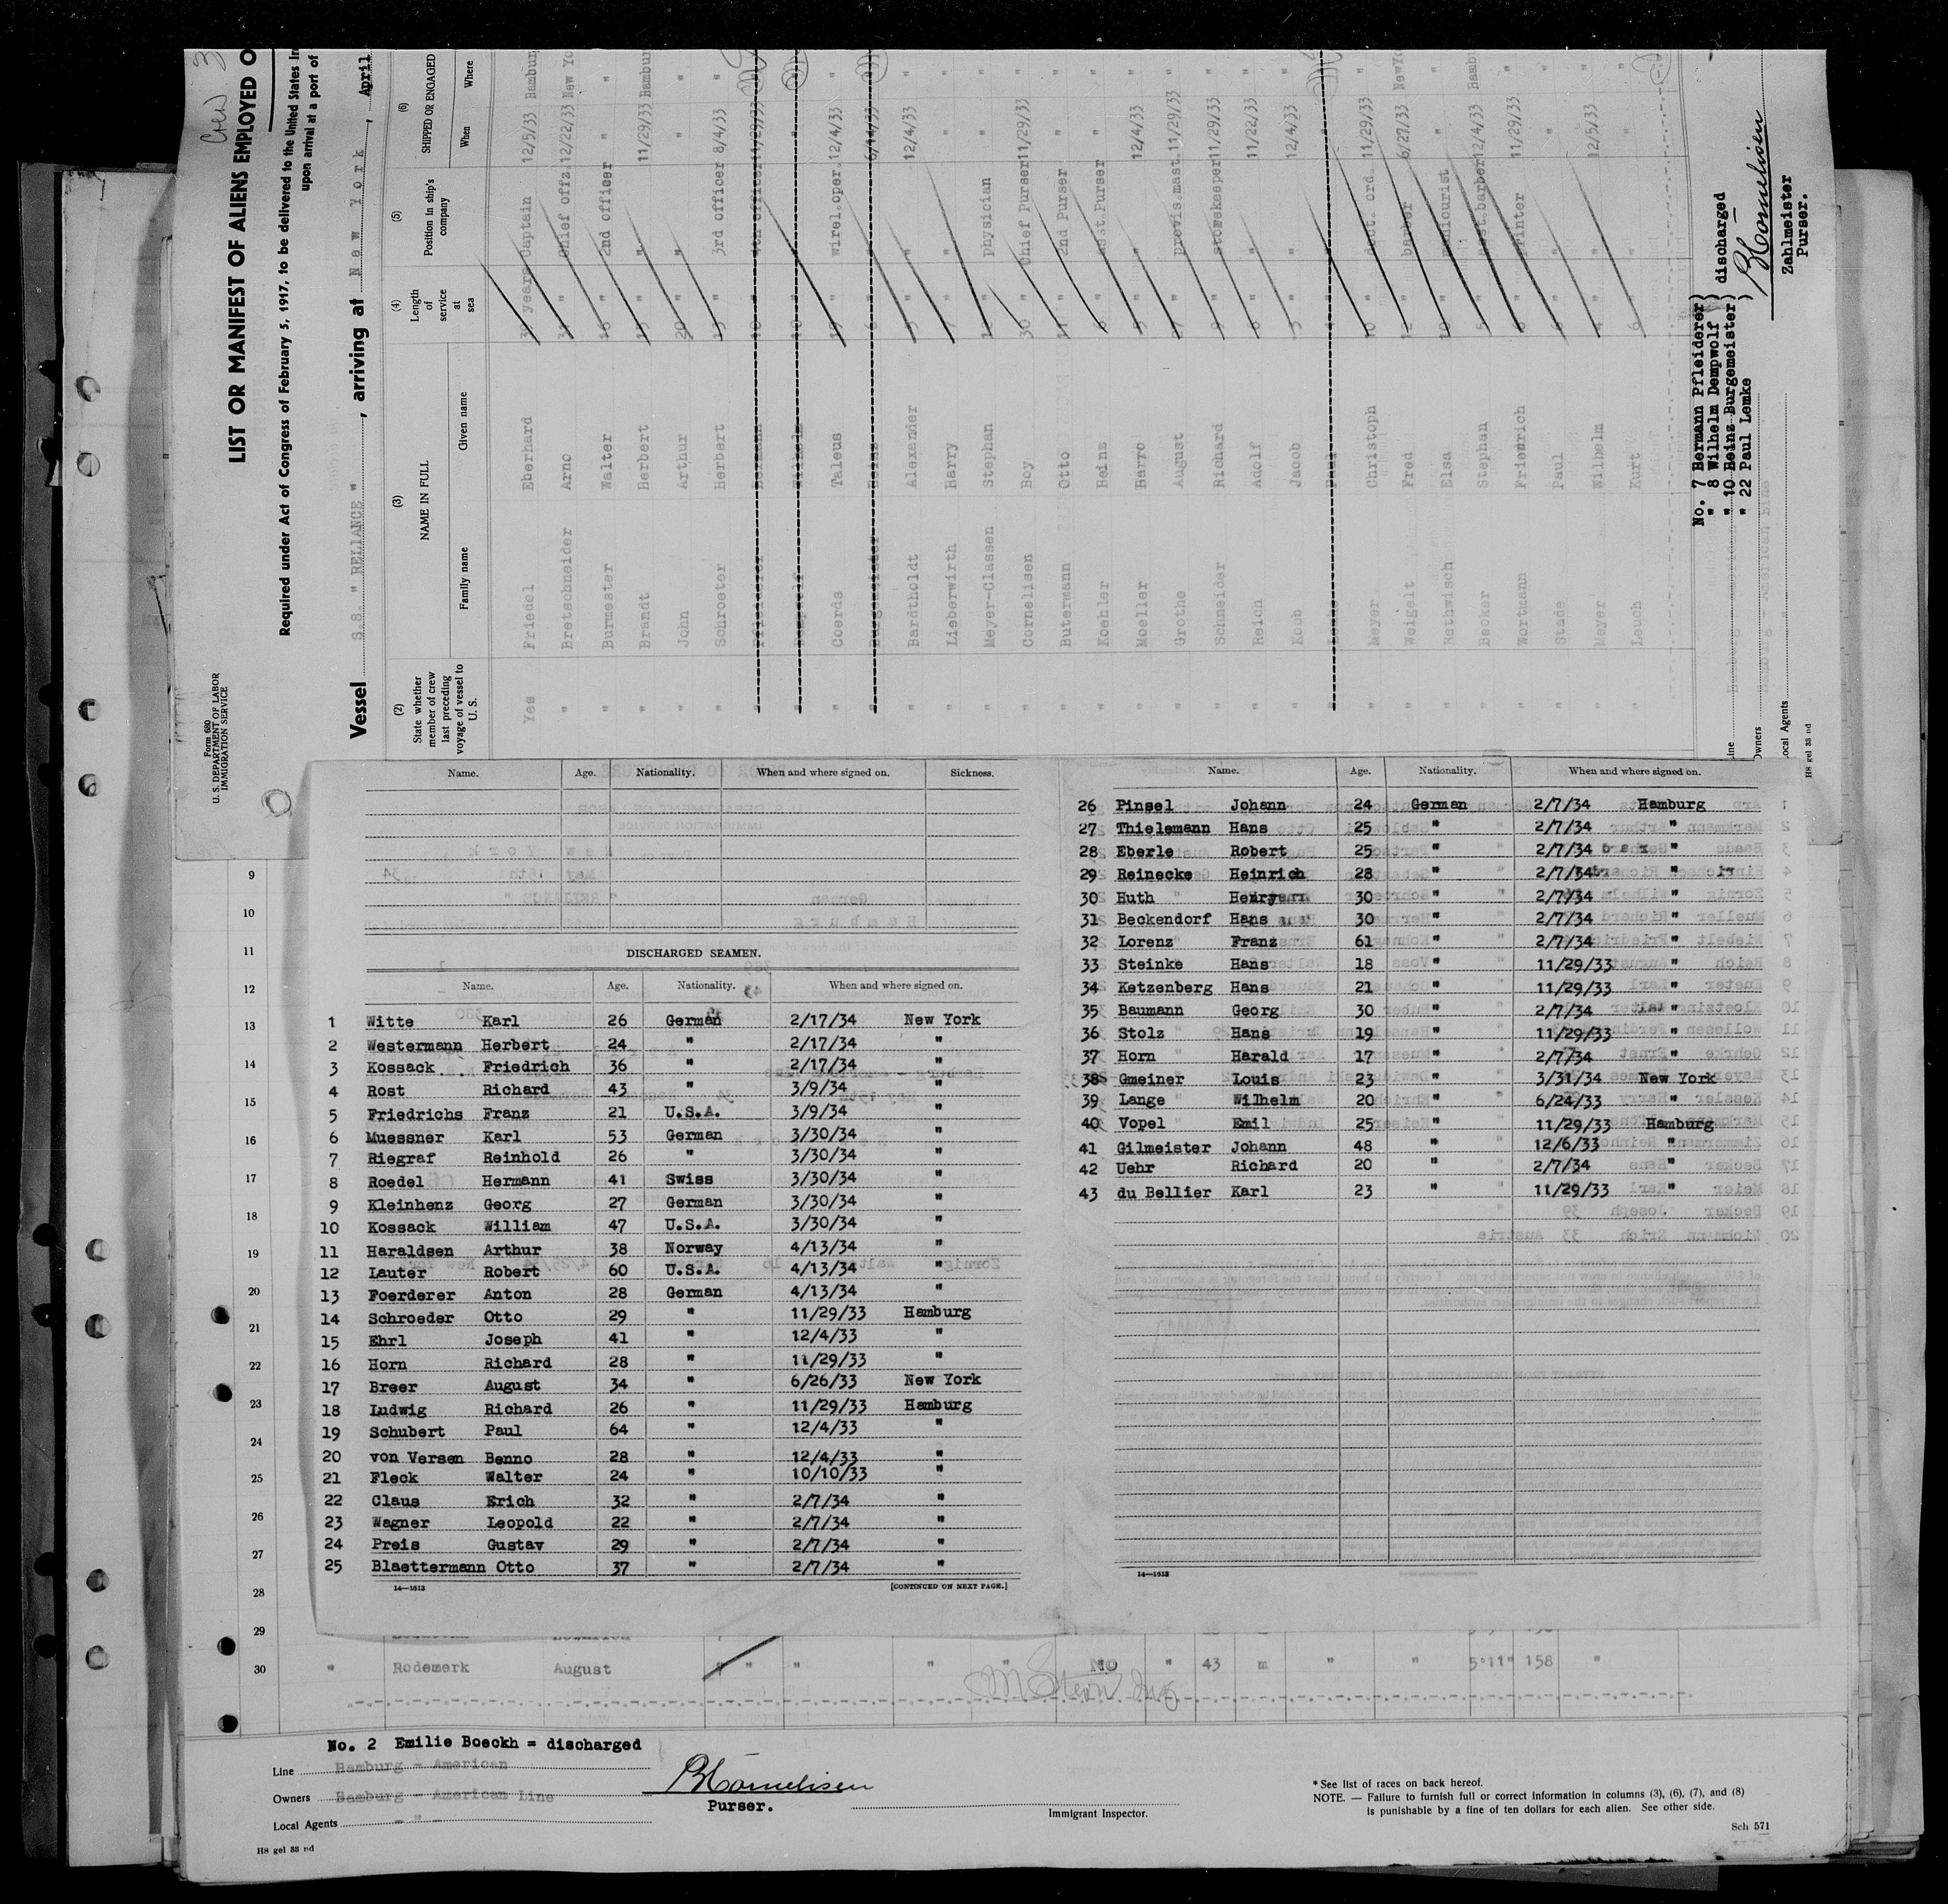 Crew 3
LIST OR MANIFEST OF ALIENS EMPLOYED O
Required under Act of Congress of February 5, 1917, to be delivered to the United States
upon arrival at a port of
Form 680
U. S. DEPARTMENT OF LABOR
IMMIGRATION SERVICE
Vessel S.S. " RELIANCE ", arriving at New York, April
(2) State whether member of crew last preceding voyage of vessel to U. S.
(3) NAME IN FULL
Family name Given name
(4) Length of service at sea
(5) Position in ship's company
(6) SHIPPED OR ENGAGED
When Where
Yes Friedel Eberhard years Captain 12/5/33 Hambur
" Bretschneider Arno " Chief offz. 12/22/33 New Yo
" Burmester Walter " 2nd officer " "
" Brandt Herbert " " 11/29/33 Hambur
" John Arthur 20 " " " "
" Schroeter Herbert 13 " 3rd officer 8/4/33 "
" 4th officer 11/29/33
"
" Coerds Taleus " wirel.oper. 12/4/33 "
" 6/14/33
" Bardtholdt Alexander " " 12/4/33 "
" Lieberwirth Harry " " " "
" Meyer-Classen Stephan " physician " "
" Cornelisen Boy 30 " Chief Purser 11/29/33 "
" Butermann Otto " 2nd Purser " "
" Koehler Heinz " asst.Purser " "
" Moeller Harro " " 12/4/33 "
" Grothe August " provis.mast. 11/29/33 "
" Schneider Richard " storekeeper 11/29/33 "
" Reich Adolf " " 11/24/33 "
" Koob Jacob " " 12/4/33 "
" Paul
" Meyer Christoph 10 " 11/29/33 "
" Weigelt Fred " barber 6/27/33 NewYo
" Rethwisch Elsa " manicurist " "
" Becker Stephan " asst.barber 12/4/33 Hambu
" Wortmann Friedrich " printer 11/29/33 "
" Stade Paul " " " "
" Meyer Wilhelm " " 12/5/33 "
" Leuch Kurt " " " "
No. 7 Hermann Pfleiderer)
" 8 Wilhelm Dempwolf ) discharged
" 10 Heinz Burgemeister)
" 22 Paul Lemke )
BCornelisen
Zahlmeister
Purser.
Line
Owners
Local Agents
H8 gel 33 nd
Name. Age. Nationality. When and where signed on. Sickness.
DISCHARGED SEAMEN.
Name. Age. Nationality. When and where signed on.
1 Witte Karl 26 German 2/17/34 New York
2 Westermann Herbert 24 " 2/17/34 "
3 Kossack Friedrich 36 " 2/17/34 "
4 Rost Richard 43 " 3/9/34 "
5 Friedrichs Franz 21 U.S.A. 3/9/34 "
6 Muessner Karl 53 German 3/30/34 "
7 Riegraf Reinhold 26 " 3/30/34 "
8 Roedel Hermann 41 Swiss 3/30/34 "
9 Kleinhenz Georg 27 German 3/30/34 "
10 Kossack William 47 U.S.A. 3/30/34 "
11 Haraldsen Arthur 38 Norway 4/13/34 "
12 Lauter Robert 60 U.S.A. 4/13/34 "
13 Foerderer Anton 28 German 4/13/34 "
14 Schroeder Otto 29 " 11/29/33 Hamburg
15 Ehrl Joseph 41 " 12/4/33 "
16 Horn Richard 28 " 11/29/33 "
17 Breer August 34 " 6/26/33 New York
18 Ludwig Richard 26 " 11/29/33 Hamburg
19 Schubert Paul 64 " 12/4/33 "
20 von Versen Benno 28 " 12/4/33 "
21 Fleck Walter 24 " 10/10/33 "
22 Claus Erich 32 " 2/7/34 "
23 Wagner Leopold 22 " 2/7/34 "
24 Preis Gustav 29 " 2/7/34 "
25 Blaettermann Otto 37 " 2/7/34 "
14—1613 [CONTINUED ON NEXT PAGE.]
Name. Age. Nationality. When and where signed on.
26 Pinsel Johann 24 German 2/7/34 Hamburg
27 Thielemann Hans 25 " 2/7/34 "
28 Eberle Robert 25 " 2/7/34 "
29 Reinecke Heinrich 28 " 2/7/34 "
30 Huth Henry 30 " 2/7/34 "
31 Beckendorf Hans 30 " 2/7/34 "
32 Lorenz Franz 61 " 2/7/34 "
33 Steinke Hans 18 " 11/29/33 "
34 Ketzenberg Hans 21 " 11/29/33 "
35 Baumann Georg 30 " 2/7/34 "
36 Stolz Hans 19 " 11/29/33 "
37 Horn Harald 17 " 2/7/34 "
38 Gmeiner Louis 23 " 3/31/34 New York
39 Lange Wilhelm 20 " 6/24/33 "
40 Vopel Emil 25 " 11/29/33 Hamburg
41 Gilmeister Johann 48 " 12/6/33 "
42 Uehr Richard 20 " 2/7/34 "
43 du Bellier Karl 23 " 11/29/33 "
14—1613
9
10
11
12
13
14
15
16
17
18
19
20
21
22
23
24
25
26
27
28
29
30 " Rodemerk August " " " " No " 43 m " " 5'11" 158 "
M Stern Ins
No. 2 Emilie Boeckh = discharged
Line Hamburg - American
Owners Hamburg - American Line
Local Agents - " -
H8 gel 33 nd
BCornelisen
Purser.
Immigrant Inspector.
* See list of races on back hereof.
NOTE. — Failure to furnish full or correct information in columns (3), (6), (7), and (8)
is punishable by a fine of ten dollars for each alien. See other side.
Sch 571